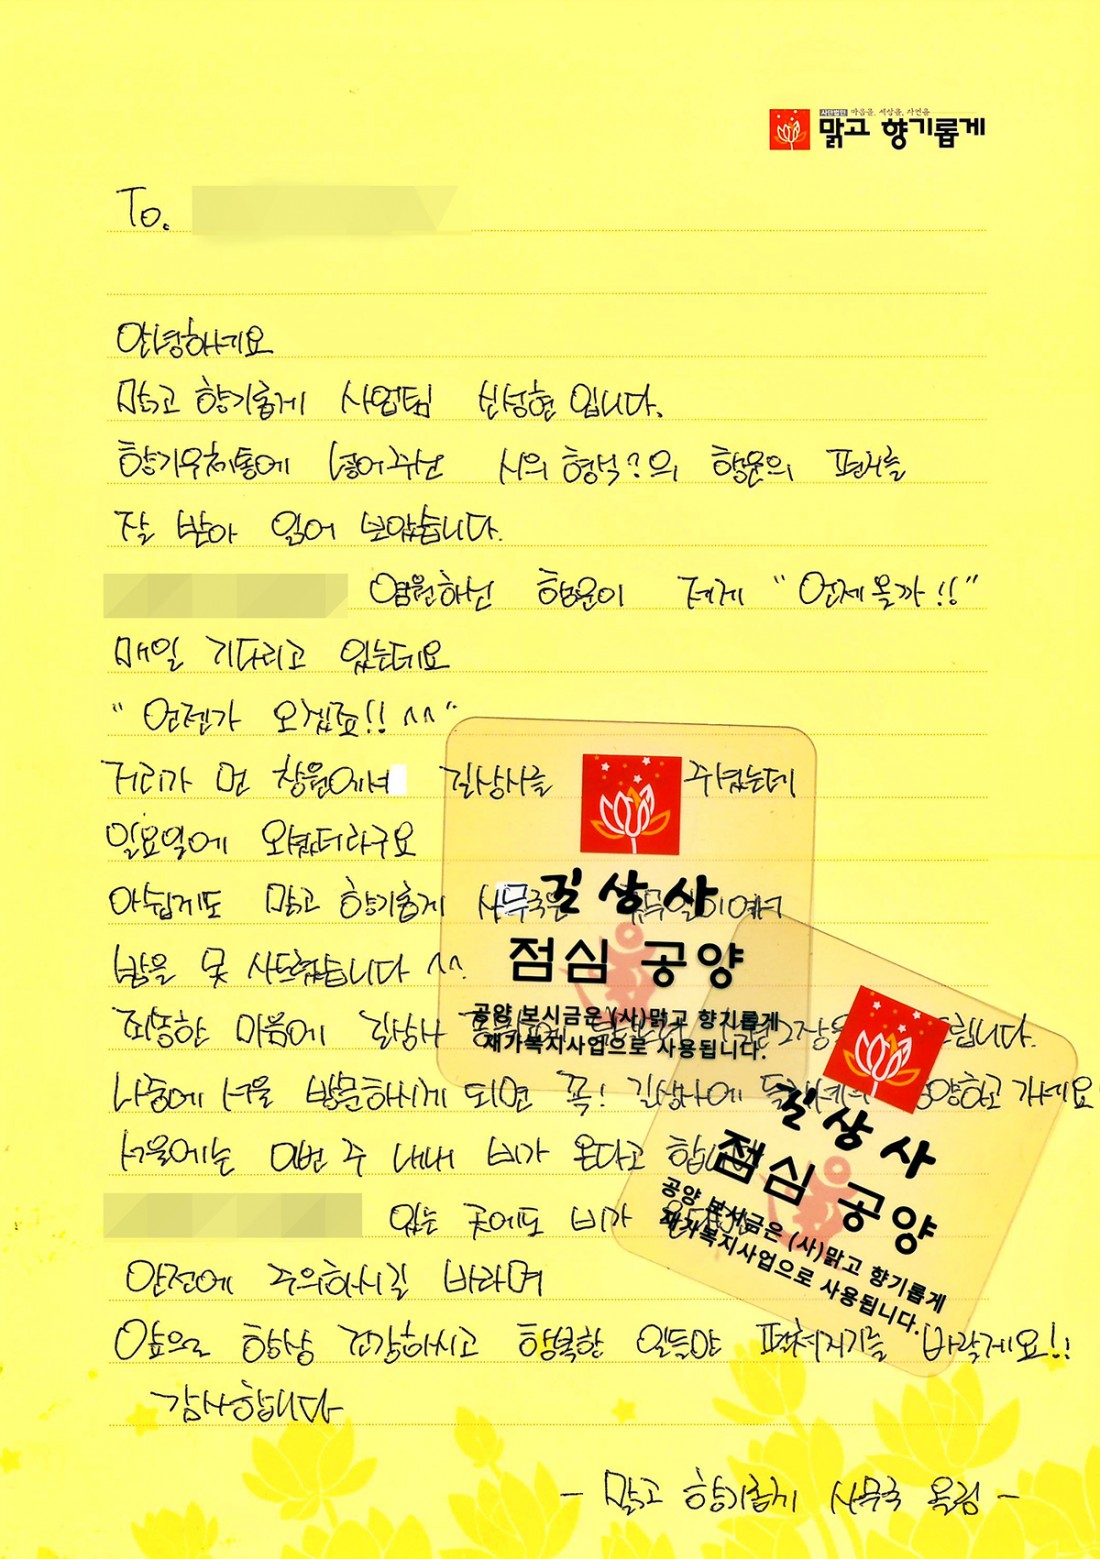 사단법인 마음을, 세상을, 자연을
맑고 향기롭게
To.
안녕하세요
맑고 향기롭게 사업팀 신성현 입니다.
향기우체통에 넣어주신 시의 형식?의 행운의 편지를
잘 받아 읽어 보았습니다.
염원하신 행운이 저게 "언제올까!!"
매일 기다리고 있는데요
"언젠가 오겠죠!! ^^"
거리가 먼 창원에서 길상사를 주셨는데
일요일에 오셨더라구요
아쉽게도 맑고 향기롭게 사무국은 휴무일이여서
밥을 못 사드렸습니다 ^^.
죄송한 마음에 길상사
나중에 서울 방문하시게 되면 꼭! 길상사에 공양하고 가세요
서울에는 이번 주 내내 비가 온다고
있는 곳에도 비가
안전에 주의하시길 바라며
앞으로 항상 건강하시고 행복한 일들만 펼쳐지기를 바랄게요!!
감사합니다
- 맑고 향기롭게 사무국 올림 -
길상사
점심 공양
공양 보시금은 (사)맑고 향기롭게
재가복지사업으로 사용됩니다.
길상사
점심 공양
공양 보시금은 (사)맑고 향기롭게
재가복지사업으로 사용됩니다.